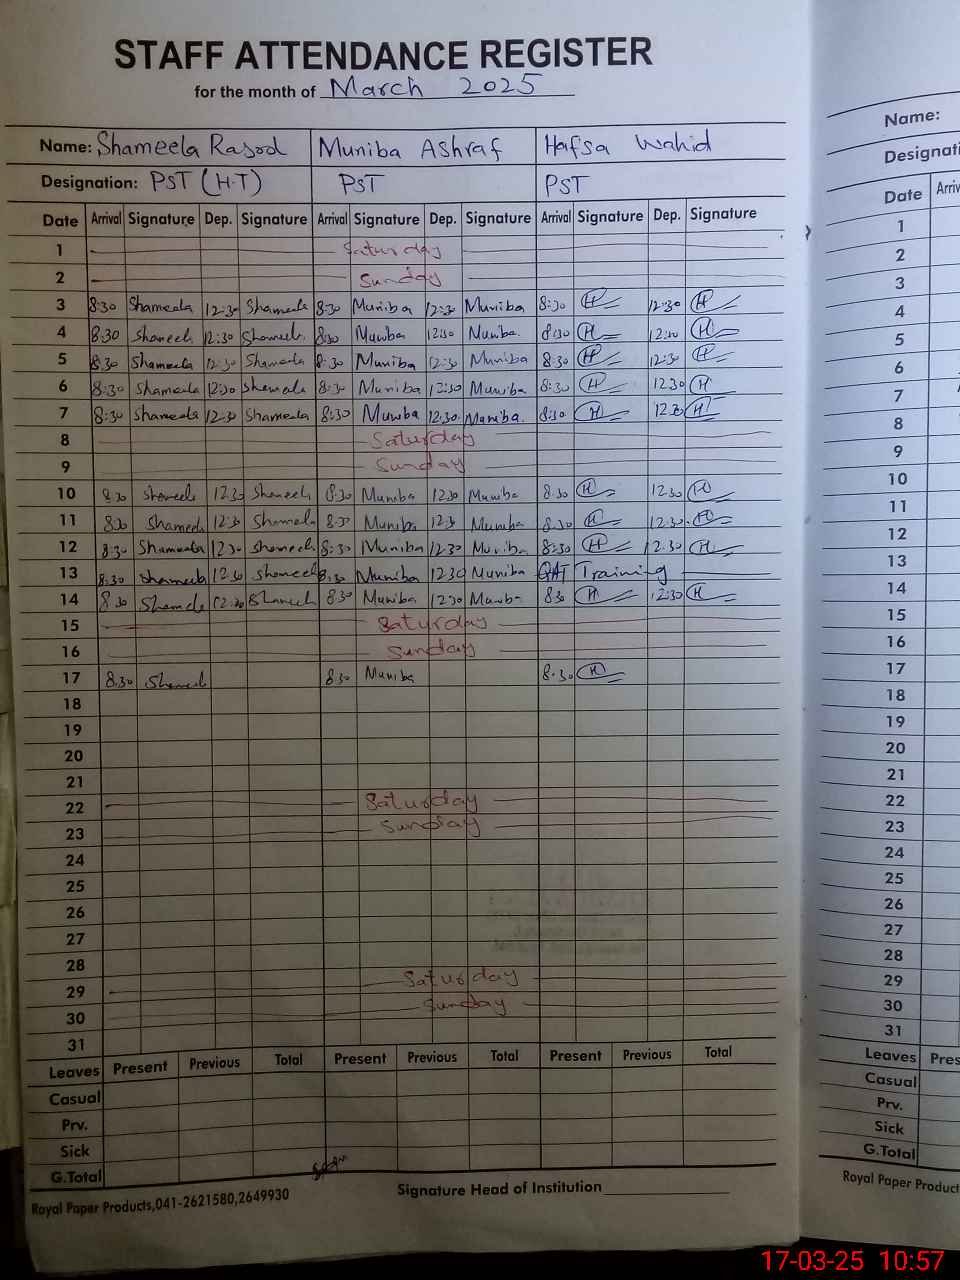 STAFF ATTENDANCE REGISTER
for the month of March 2025
Name: Shameela Rasool Muniba Ashraf Hafsa Wahid
Designation: PST (H.T) PST PST
Date Arrival Signature Dep. Signature Arrival Signature Dep. Signature Arrival Signature Dep. Signature
1 Saturday
2 Sunday
3 8:30 Shameela 12:30 Shameela 8:30 Muniba 12:30 Muniba 8:30 H 12:30 H
4 8:30 Shameela 12:30 Shameela 8:30 Muniba 12:30 Muniba 8:30 H 12:30 H
5 8:30 Shameela 12:30 Shameela 8:30 Muniba 12:30 Muniba 8:30 H 12:30 H
6 8:30 Shameela 12:30 Shameela 8:30 Muniba 12:30 Muniba 8:30 H 12:30 H
7 8:30 Shameela 12:30 Shameela 8:30 Muniba 12:30 Muniba 8:30 H 12:30 H
8 Saturday
9 Sunday
10 8:30 Shameela 12:30 Shameela 8:30 Muniba 12:30 Muniba 8:30 H 12:30 H
11 8:30 Shameela 12:30 Shameela 8:30 Muniba 12:30 Muniba 8:30 H 12:30 H
12 8:30 Shameela 12:30 Shameela 8:30 Muniba 12:30 Muniba 8:30 H 12:30 H
13 8:30 Shameela 12:30 Shameela 8:30 Muniba 12:30 Muniba Training
14 8:30 Shameela 12:30 Shameela 8:30 Muniba 12:30 Muniba 8:30 H 12:30 H
15 Saturday
16 Sunday
17 8:30 Shameela 8:30 Muniba 8:30 H
18
19
20
21
22 Saturday
23 Sunday
24
25
26
27
28
29 Saturday
30 Sunday
31
Leaves Present Previous Total Present Previous Total Present Previous Total
Casual
Prv.
Sick
G.Total
Royal Paper Products,041-2621580,2649930 Signature Head of Institution
Name:
Date
1
2
3
4
5
6
7
8
9
10
11
12
13
14
15
16
17
18
19
20
21
22
23
24
25
26
27
28
29
30
31
Leaves
Casual
Prv.
Sick
G.Total
Royal Paper
17-03-25 10:57